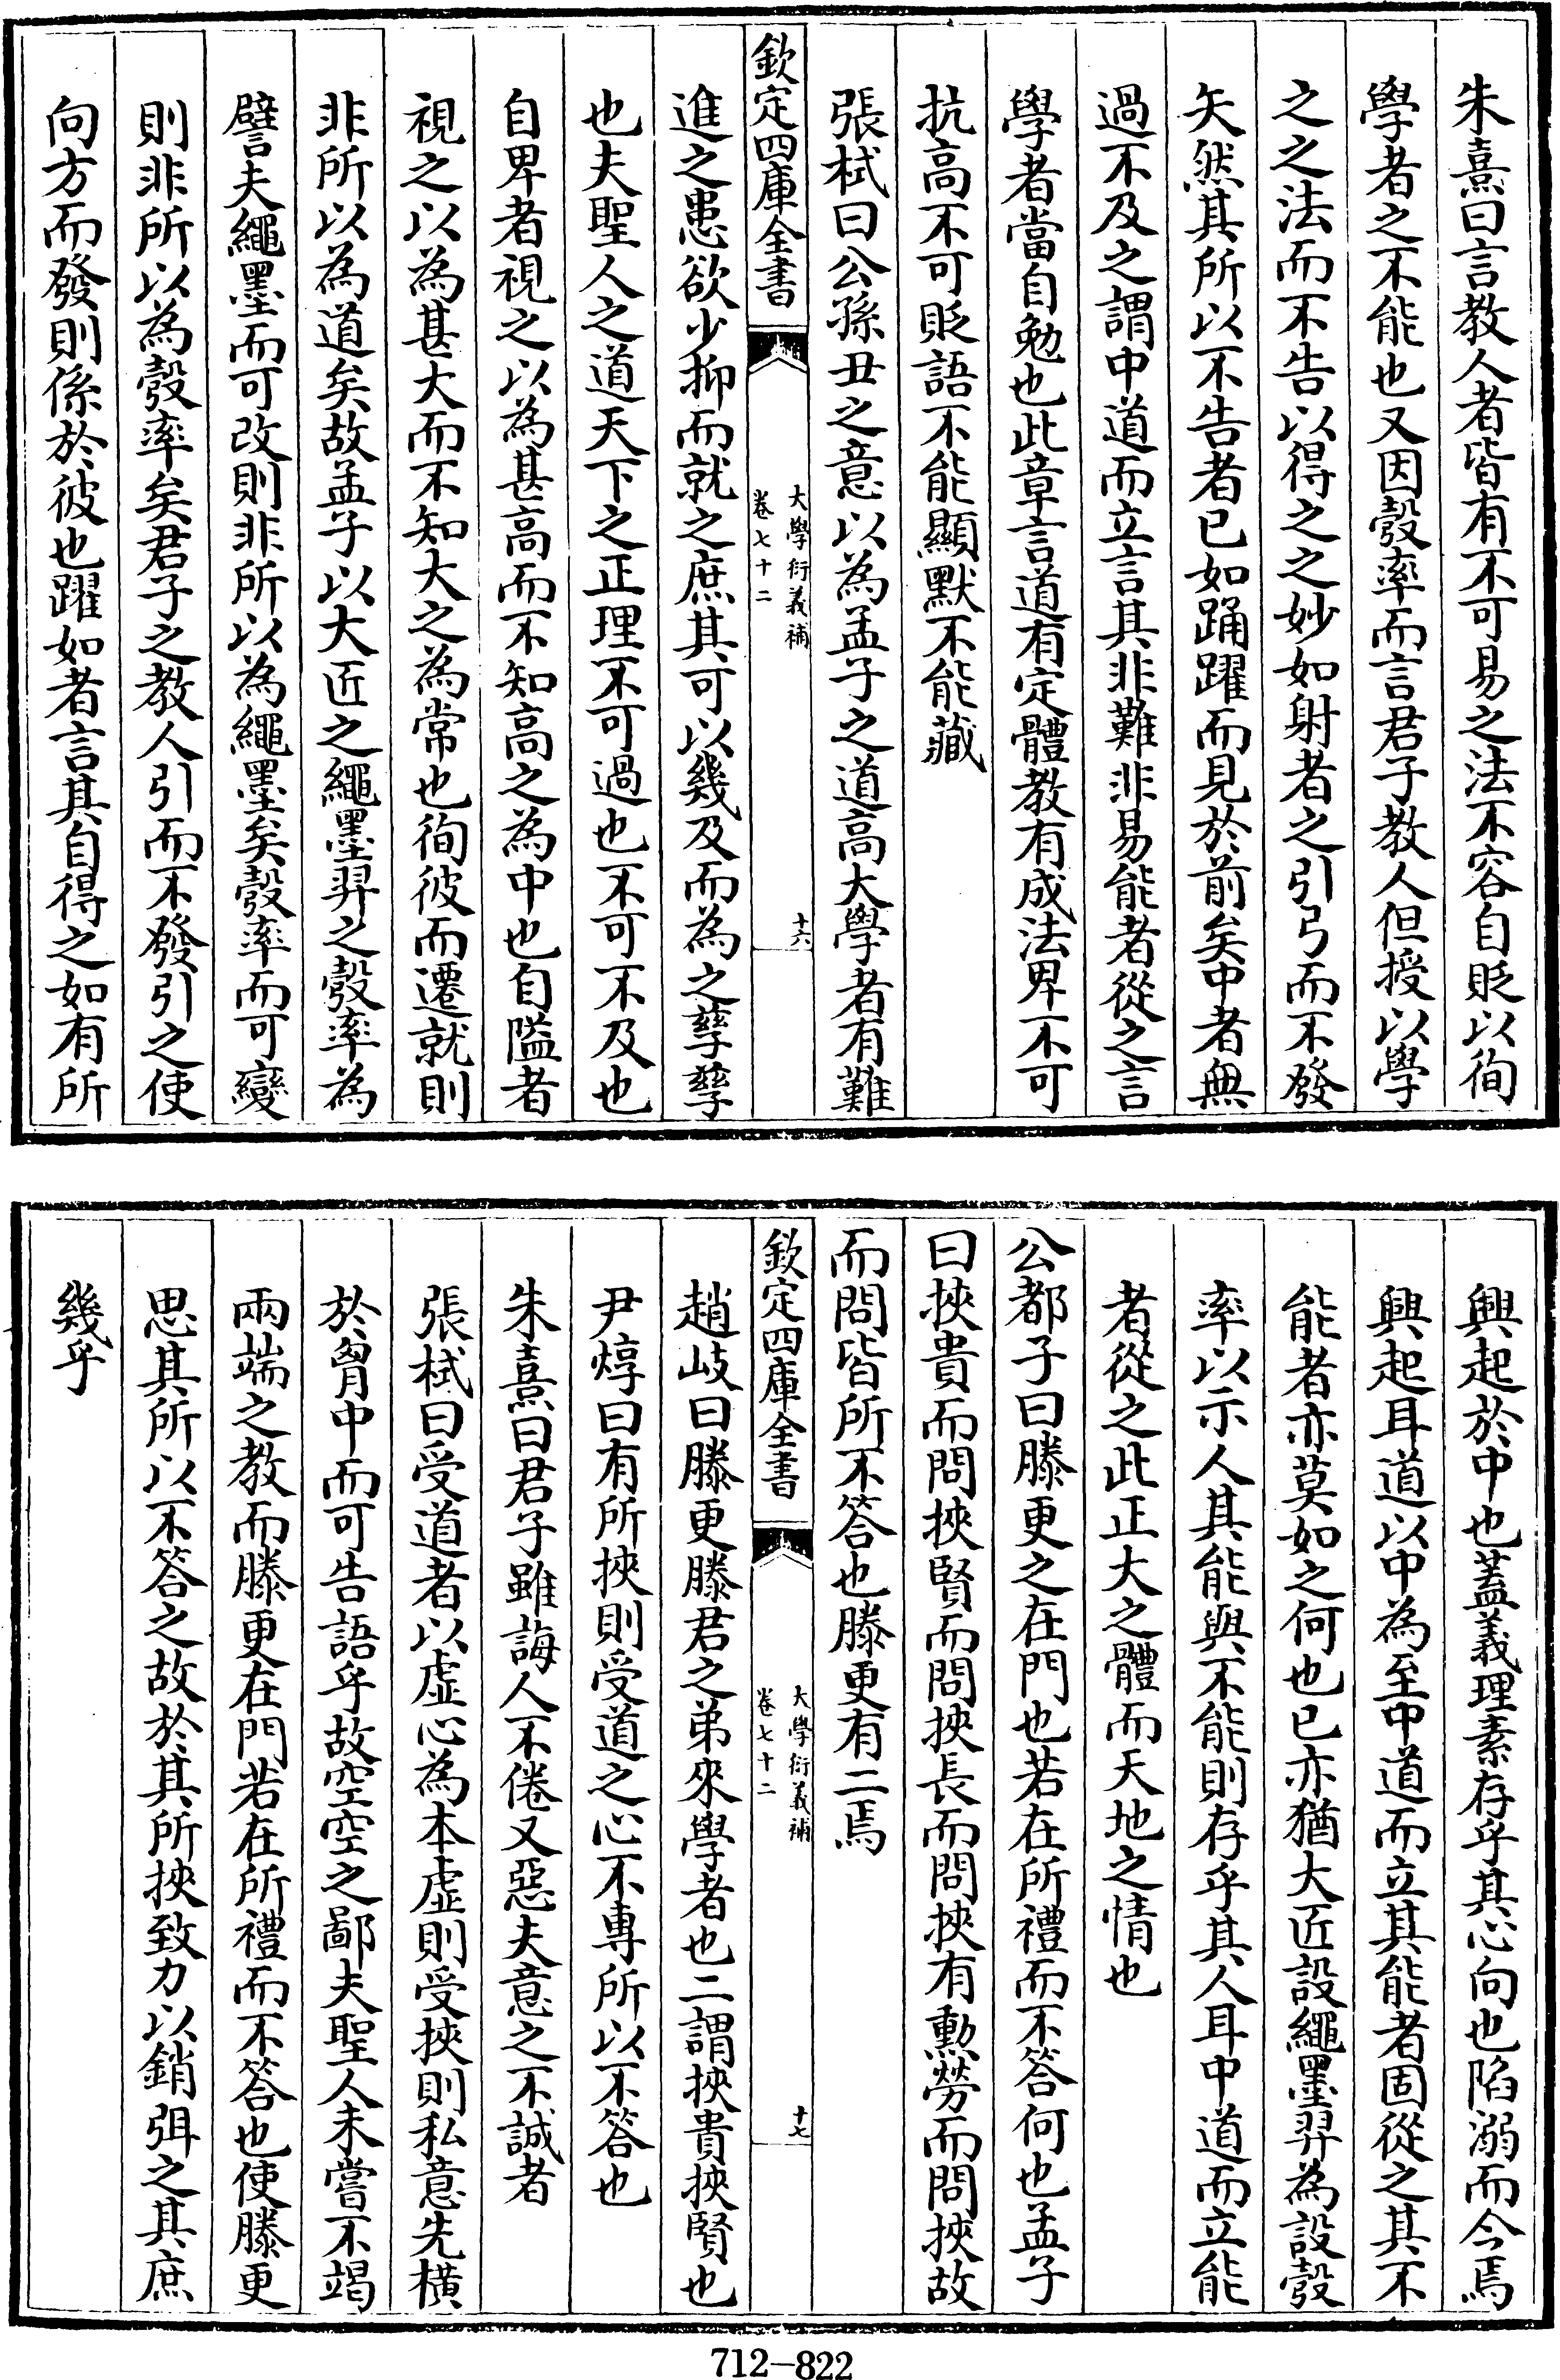 朱熹曰言教人者皆有不可易之法不容自貶以徇
學者之不能也又因彀率而言君子教人但授以學
之之法而不告以得之之妙如射者之引弓而不發
矢然其所以不告者已如踊躍而見於前矣中者無
過不及之謂中道而立言其非難非易能者從之言
學者當自勉也此章言道有定體教有成法卑不可
抗高不可貶語不能顯默不能藏
張栻曰公孫丑之意以為孟子之道高大學者有難
欽定四庫全書
大學衍義補
卷七十二
十六
進之患欲少抑而就之庶其可以幾及而為之孳孳
也夫聖人之道天下之正理不可過也不可不及也
自卑者視之以為甚高而不知高之為中也自隘者
視之以為甚大而不知大之為常也徇彼而遷就則
非所以為道矣故孟子以大匠之繩墨羿之彀率為
譬夫繩墨而可改則非所以為繩墨矣彀率而可變
則非所以為彀率矣君子之教人引而不發引之使
向方而發則係於彼也躍如者言其自得之如有所
興起於中也蓋義理素存乎其心向也陷溺而今焉
興起耳道以中為至中道而立其能者固從之其不
能者亦莫如之何也已亦猶大匠設繩墨羿為設彀
率以示人其能與不能則存乎其人耳中道而立能
者從之此正大之體而天地之情也
公都子曰滕更之在門也若在所禮而不答何也孟子
曰挾貴而問挾賢而問挾長而問挾有勳勞而問挾故
而問皆所不答也滕更有二焉
欽定四庫全書
大學衍義補
卷七十二
十七
趙岐曰滕更滕君之弟來學者也二謂挾貴挾賢也
尹焞曰有所挾則受道之心不專所以不答也
朱熹曰君子雖誨人不倦又惡夫意之不誠者
張栻曰受道者以虛心為本虛則受挾則私意先橫
於胷中而可告語乎故空空之鄙夫聖人未嘗不竭
兩端之教而滕更在門若在所禮而不答也使滕更
思其所以不答之故於其所挾致力以銷弭之其庶
幾乎
712-822